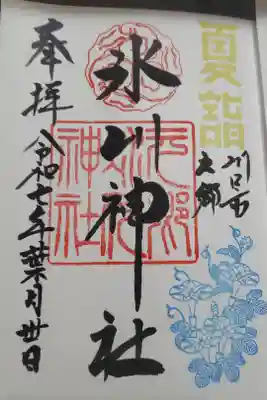 夏詣
川口市
元郷
氷川神社
元郷
氷川
神社
奉拝
令和七年葉月卅日